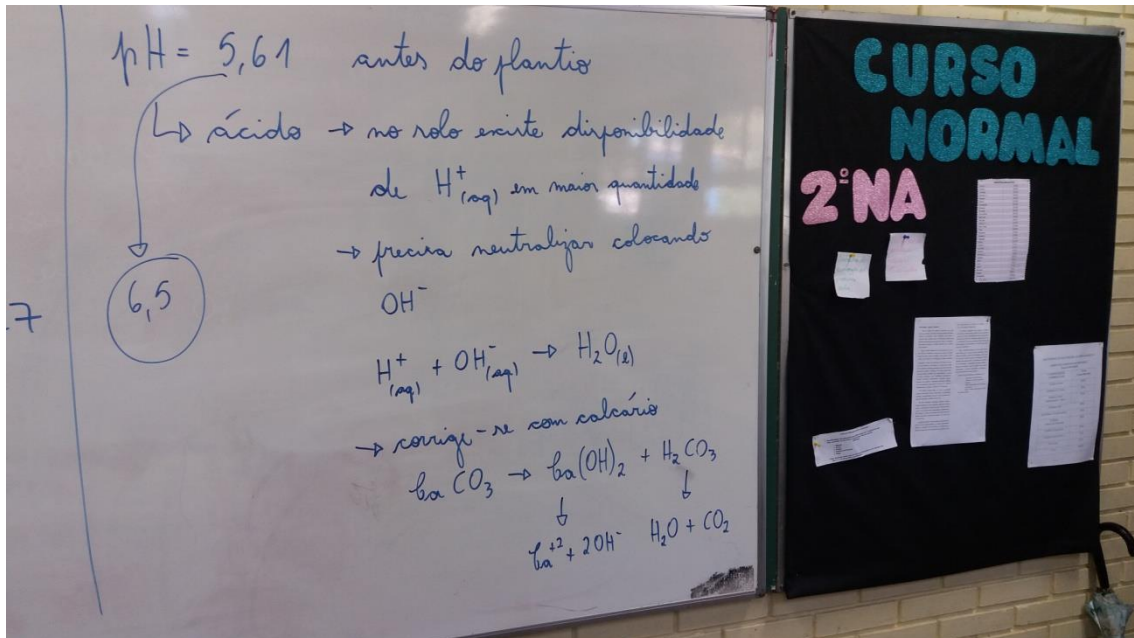 pH = 5,61 antes do plantio
↳ ácido → no solo existe disponibilidade
de H⁺(aq) em maior quantidade
→ precisa neutralizar colocando
OH⁻
6,5
7
H⁺(aq) + OH⁻(aq) → H₂O(l)
→ corrige-se com calcário
CaCO₃ → Ca(OH)₂ + H₂CO₃
↓ ↓
Ca⁺² + 2OH⁻ H₂O + CO₂
CURSO
NORMAL
2º NA